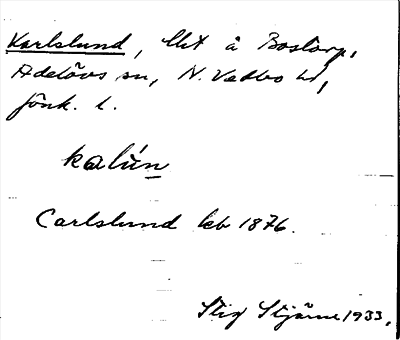 Karlslund, lht å Bostorp,
Adelövs sn, N. Vedbo hd,
Jönk. l.
kalún
Carlslund kb 1876.
Stig Stjärne 1933.